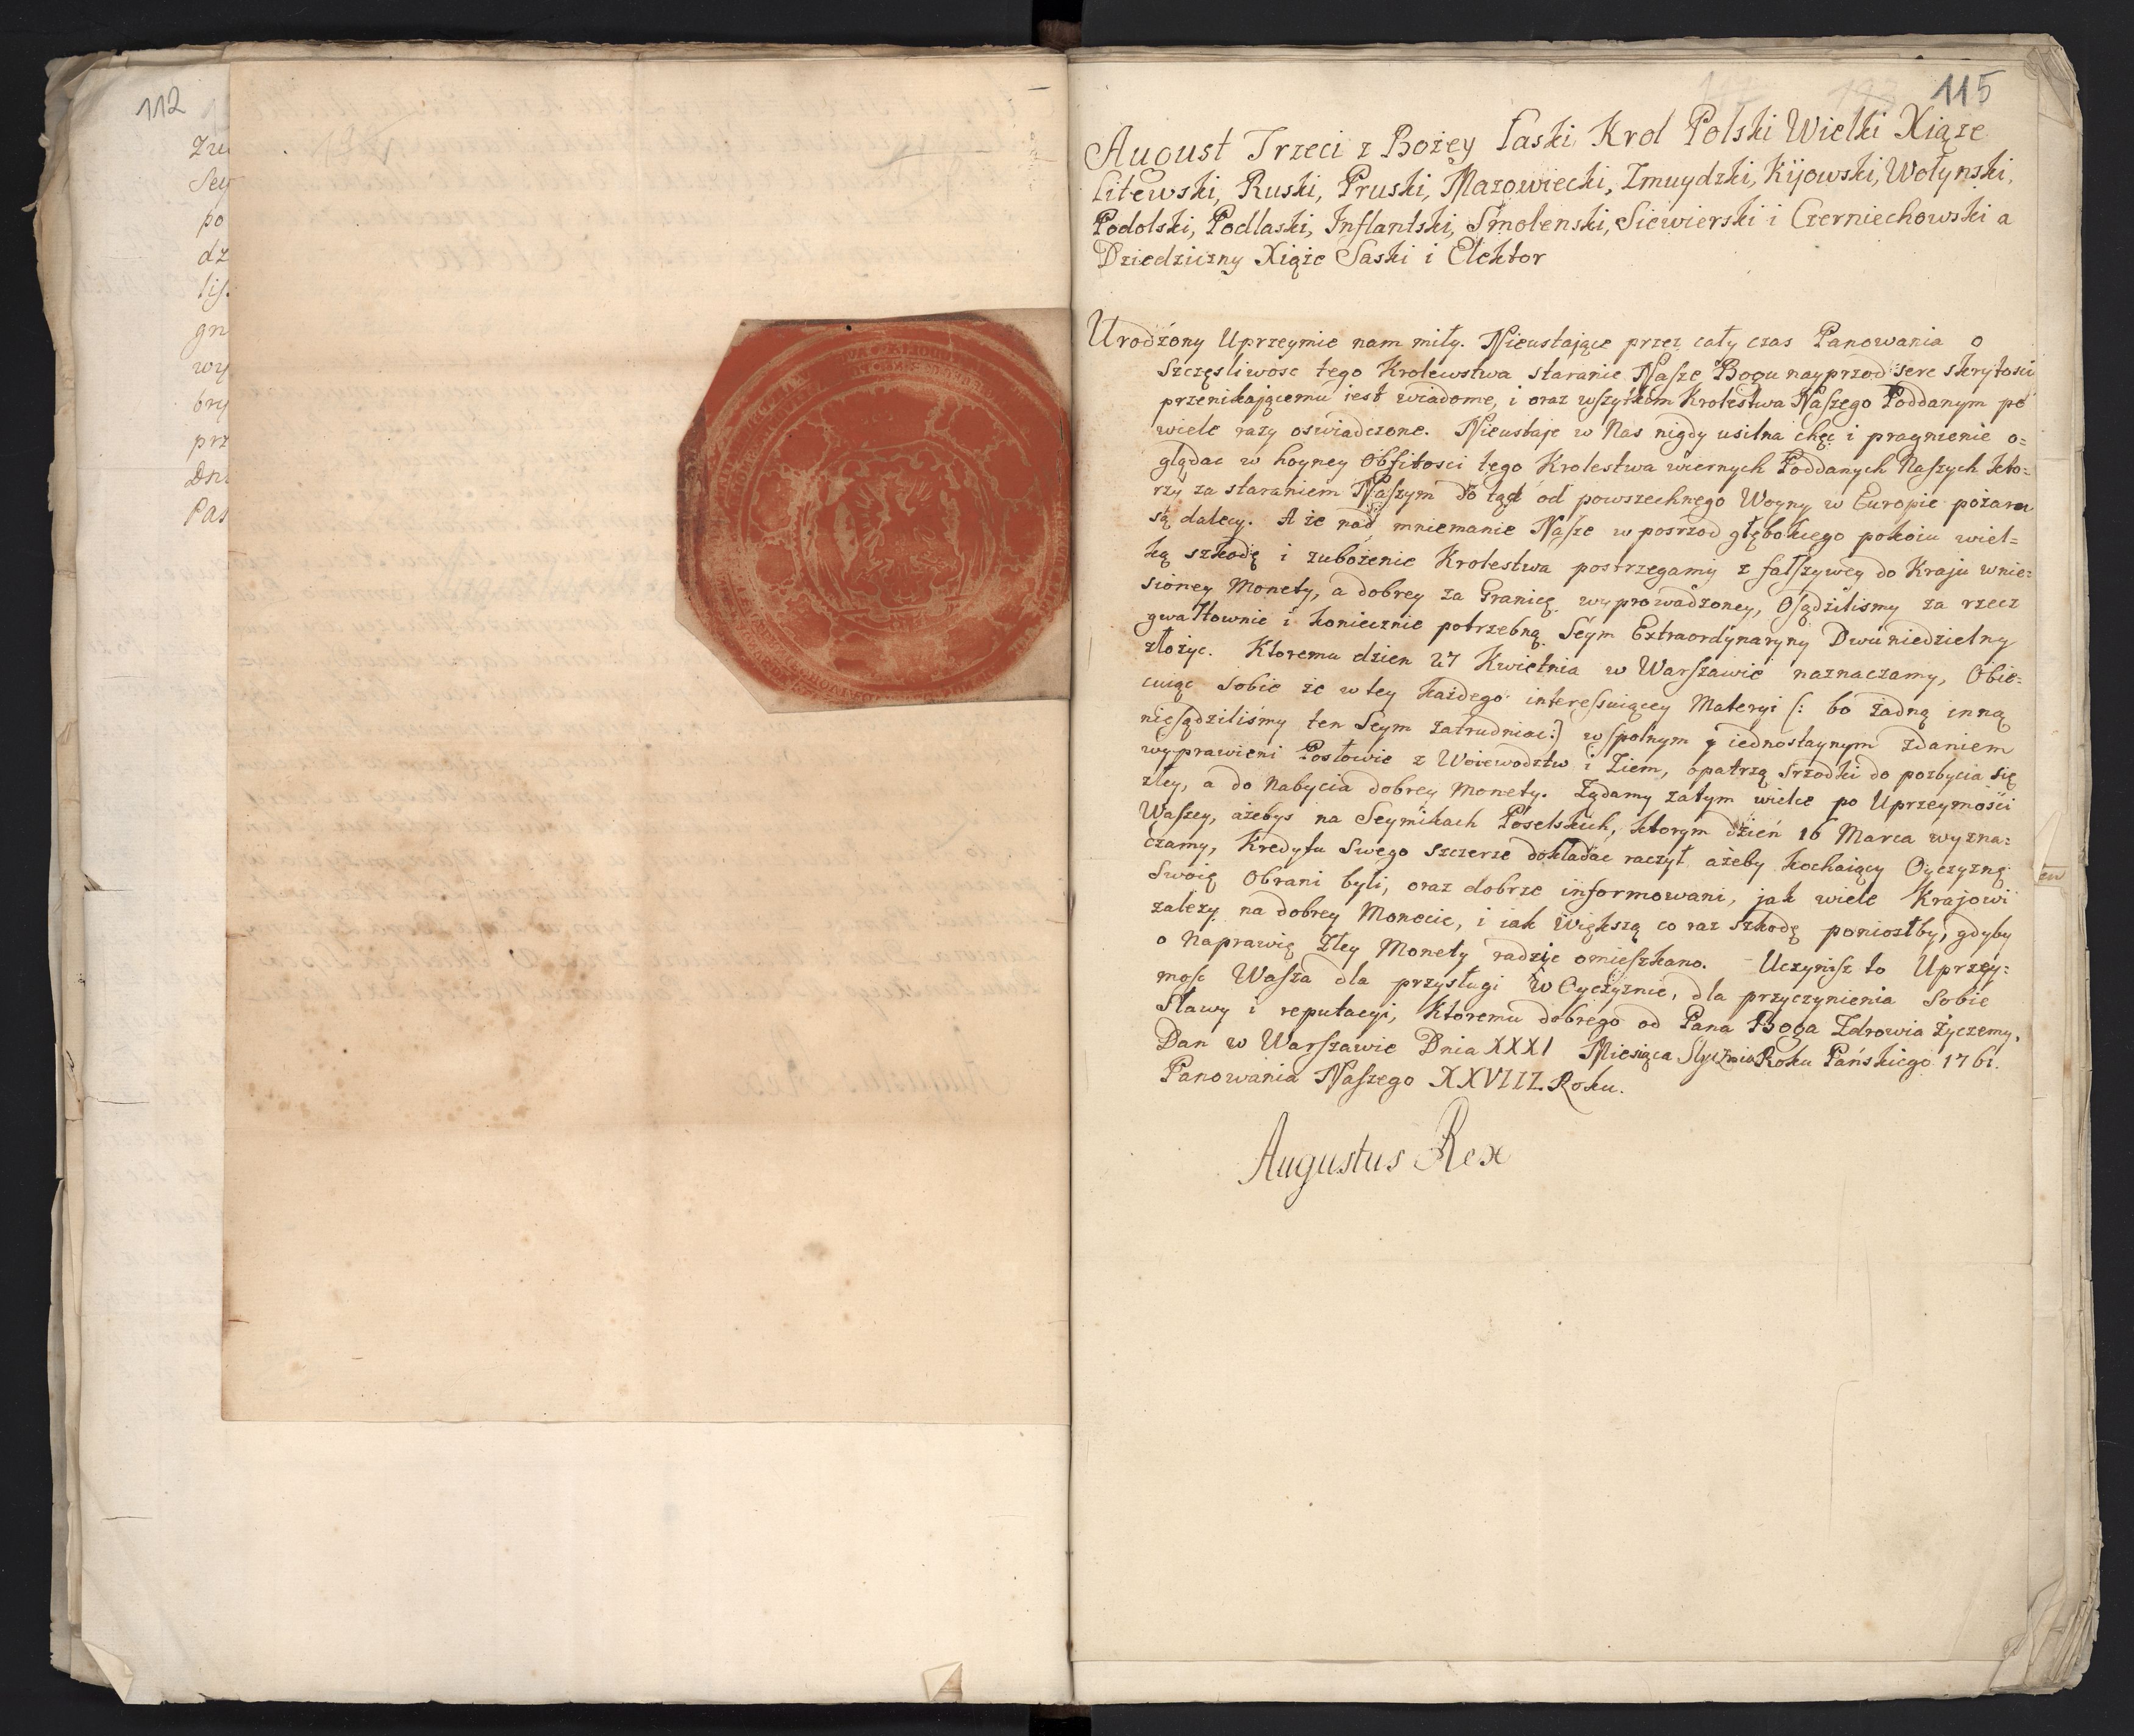 112
Zu
Sey
po
dz
lis
gn
wy
bry
prz
Dn
Pas
115
August Trzeci z Bożey Łaski Krol Polski Wielki Xiąze
Litewski, Ruski, Pruski, Mazowiecki, Zmuydzki, Kijowski, Wołynski,
Podolski, Podlaski, Inflantski, Smolenski, Siewierski i Czerniechowski a
Dziedziczny Xiąże Saski i Elektor
Urodzony Uprzeymie nam miły. Nieustaiące przez cały czas Panowania o
Szczęsliwosc tego Krolewstwa staranie Nasze Bogu nayprzod serc skrytosci
przenikaiącemu iest wiadome, i oraz wszytkim Krolestwa Naszego Poddanym po
wiele razy oswiadczone. Nieustaje w Nas nigdy usilna chęc i pragnienie o=
glądac w hoyney Obfitosci tego Krolestwa wiernych Poddanych Naszych kto=
rzy za staraniem Naszym do tąd od powszechnego Woyny w Europie pożaru
są dalecy. A że nad mniemanie Nasze w posrzod głębokiego pokoiu wiel=
ką szkodę i zubożenie Krolestwa postrzegamy z fałszywey do Kraju wnie=
sioney Monety, a dobrey za Granicę wyprowadzoney, Osądzilismy za rzecz
gwałtownie i koniecznie potrzebną Seym Extraordynaryny Dwuniedzielny
złożyc. Ktoremu dzien 27 Kwietnia w Warszawie naznaczamy, Obie=
cuiąc sobie że w tey każdego interessuiącey Materyi (: bo żadną inną
niesądziliśmy ten Seym zatrudniac:) wspolnym y iednostaynym zdaniem
wyprawieni Posłowie z Woiewodztw i Ziem, opatrzą srzodki do pozbycia się
złey, a do Nabycia dobrey Monety. Żądamy zatym wielce po Uprzeymości
Waszey, ażebyś na Seymikach Poselskich, ktorym dzień 16 Marca wyzna=
czamy, Kredytu Swego szczerze dokładac raczył ażeby kochaiący Oyczyznę
Swoię Obrani byli, oraz dobrze informowani, jak wiele Krajowi
zależy na dobrey Monecie, i iak Większą co raz szkodę poniosłby, gdyby
o Naprawię Złey Monety radzic omieszkano. Uczynisz to Uprzey=
mosc Wasza dla przysługi w Oyczyznie, dla przyczynienia Sobie
Sławy i reputacyi, Ktoremu dobrego od Pana Boga Zdrowia życzemy.
Dan w Warszawie Dnia XXXI Miesiąca Stycznia Roku Pańskiego 1761.
Panowania Naszego XXVIII Roku.
Augustus Rex